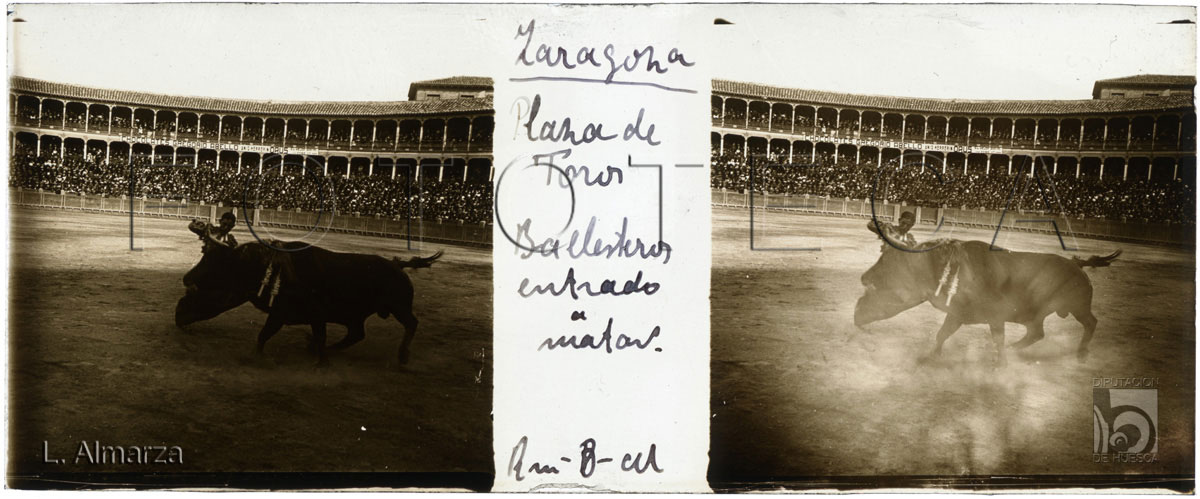 Zaragoza
Plaza de
Toros
Ballesteros
entrado
a
matar.
FOTOTECA
L. Almarza
DIPUTACION
DE HUESCA